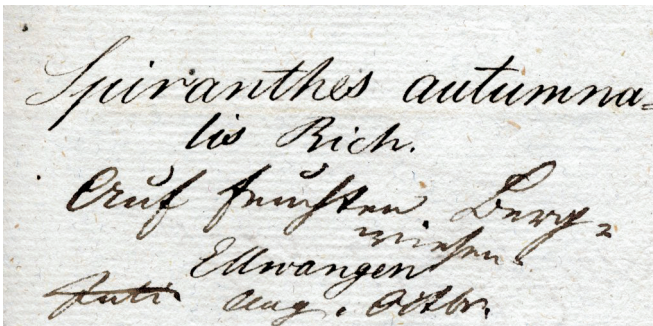 Spiranthes autumna=
lis Rich.
Auf feuchten Berg=
wiesen.
Ellwangen
Juli. Aug. Octbr.